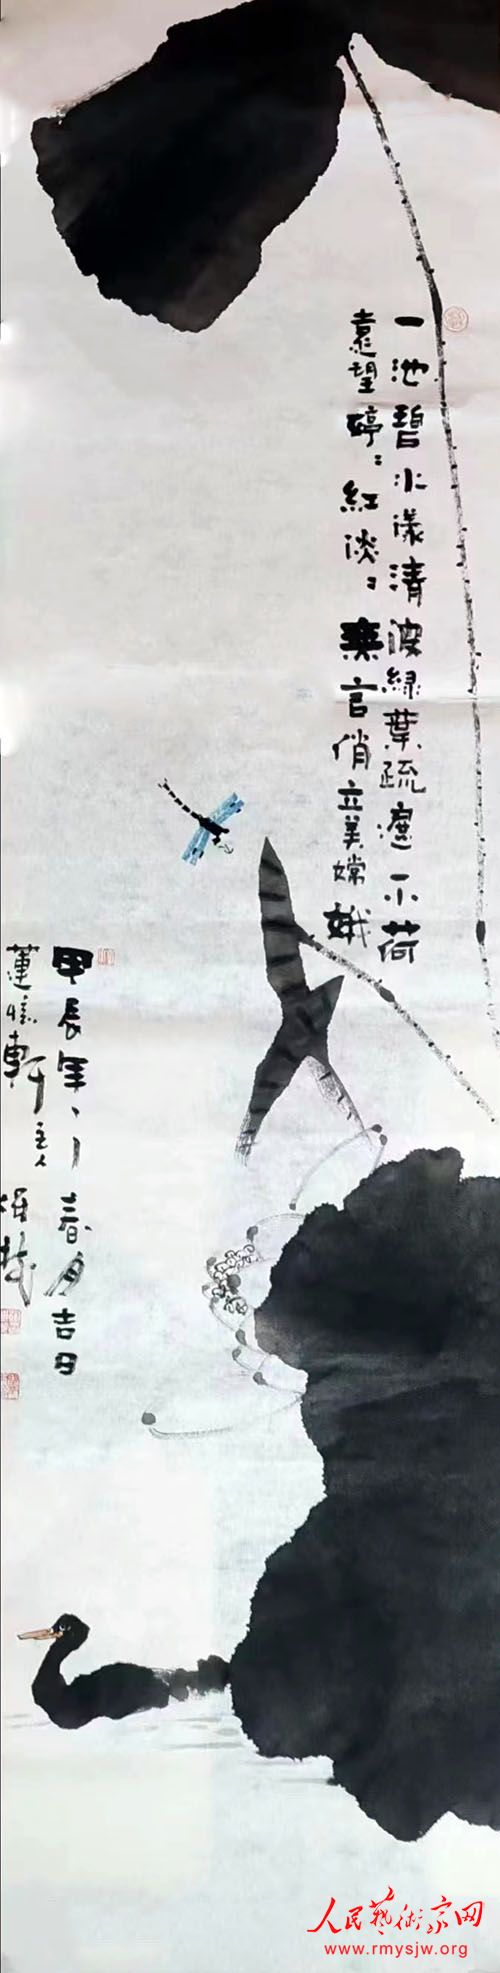 一池碧水漾清波绿葉疏遮一小荷
遠望婷：紅淡：無言俏立美嫦娥
甲辰年丶丨春月吉日
蓮緣軒主人
人民藝術家网
www.rmysjw.org